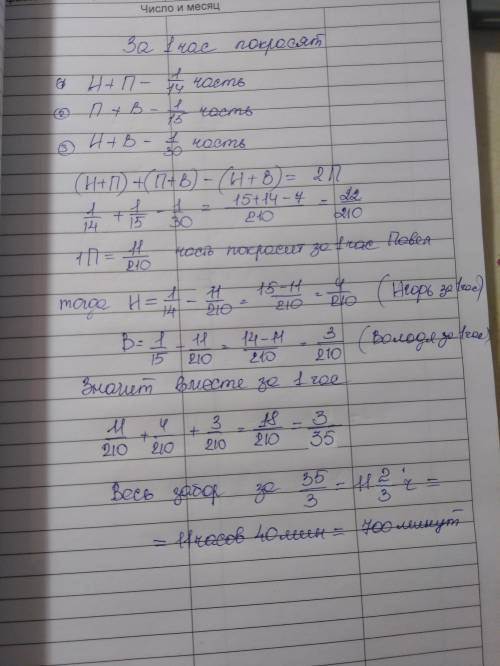 Число и месяц
За 1 час покрасят
① И+П - 1/14 часть
② П+В - 1/15 часть
③ И+В - 1/30 часть
(И+П)+(П+В)-(И+В)= 2П
1/14 + 1/15 - 1/30 = 15+14-7/210 = 22/210
1П = 11/210 часть покрасит за 1 час Павел
тогда И = 1/14 - 11/210 = 15-11/210 = 4/210 (Игорь за 1 час)
В = 1/15 - 11/210 = 14-11/210 = 3/210 (Володя за 1 час)
Значит вместе за 1 час
11/210 + 4/210 + 3/210 = 18/210 = 3/35
Весь забор за 35/3 = 11 2/3 ч =
= 11 часов 40 мин = 700 минут